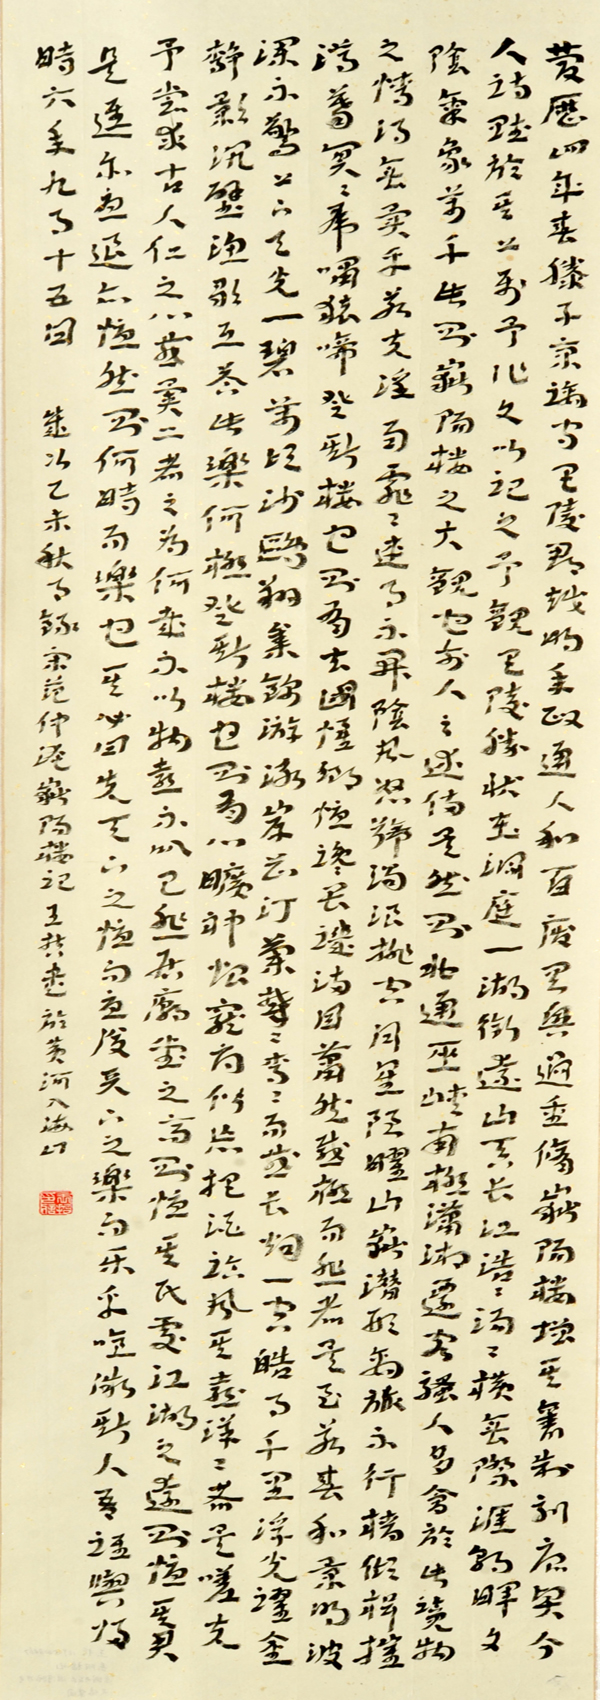 慶歷四年春滕子京謫守巴陵郡越明年政通人和百廢具興迺重脩嶽陽樓增其舊制刻唐賢今
人詩賦於其上屬予作文以記之予觀巴陵勝狀在洞庭一湖銜遠山吞長江浩々湯々橫無際涯朝暉夕
陰氣象萬千此則嶽陽樓之大觀也前人之述備矣然則北通巫峽南極瀟湘遷客騷人多會於此覽物
之情得無異乎若夫淫雨霏々連月不開陰風怒號濁浪排空日星隱曜山嶽潛形商旅不行檣傾楫摧
薄暮冥々虎嘯猿啼登斯樓也則有去國懷鄉憂讒畏譏滿目蕭然感極而悲者矣至若春和景明波
瀾不驚上下天光一碧萬頃沙鷗翔集錦鱗游泳岸芷汀蘭鬱々青々而或長烟一空皓月千里浮光躍金
靜影沉璧漁歌互答此樂何極登斯樓也則有心曠神怡寵辱偕忘把酒臨風其喜洋々者矣嗟夫
予嘗求古人仁之心或異二者之為何哉不以物喜不以己悲居廟堂之高則憂其民處江湖之遠則憂其君
是進亦憂退亦憂然則何時而樂也其必曰先天下之憂而憂後天下之樂而樂乎噫微斯人吾誰與歸
時六年九月十五日
歲次乙未秋月錄宋范仲淹嶽陽樓記 王 於黃河入海口